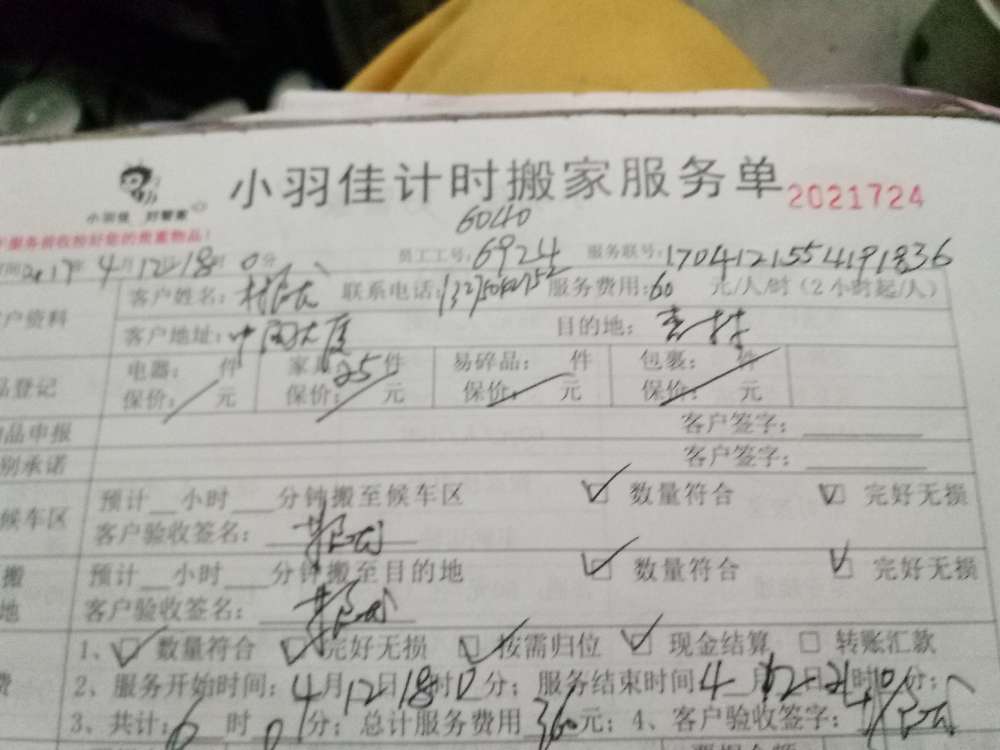 小羽佳计时搬家服务单 2021724
小羽佳 好管家
6040
时间2017年4月12日18时0分 员工工号:6924 服务联号:1704121554191836
户资料 客户姓名: 联系电话: 服务费用:60 元/人/时(2小时起/人)
客户地址:中闽大厦 目的地:
品登记 电器: 件 家具25件 易碎品: 件 包裹: 件
保价: 元 保价: 元 保价: 元 保价: 元
品申报 客户签字:
别承诺 客户签字:
候车区 预计__小时__分钟搬至候车区 数量符合 完好无损
客户验收签名:
搬 预计__小时__分钟搬至目的地 数量符合 完好无损
地 客户验收签名:
1、 数量符合 完好无损 按需归位 现金结算 转账汇款
费 2、服务开始时间:4月12日18时0分;服务结束时间4月12日21时0分;
3、共计:6时0分;总计服务费用360元;4、客户验收签字: